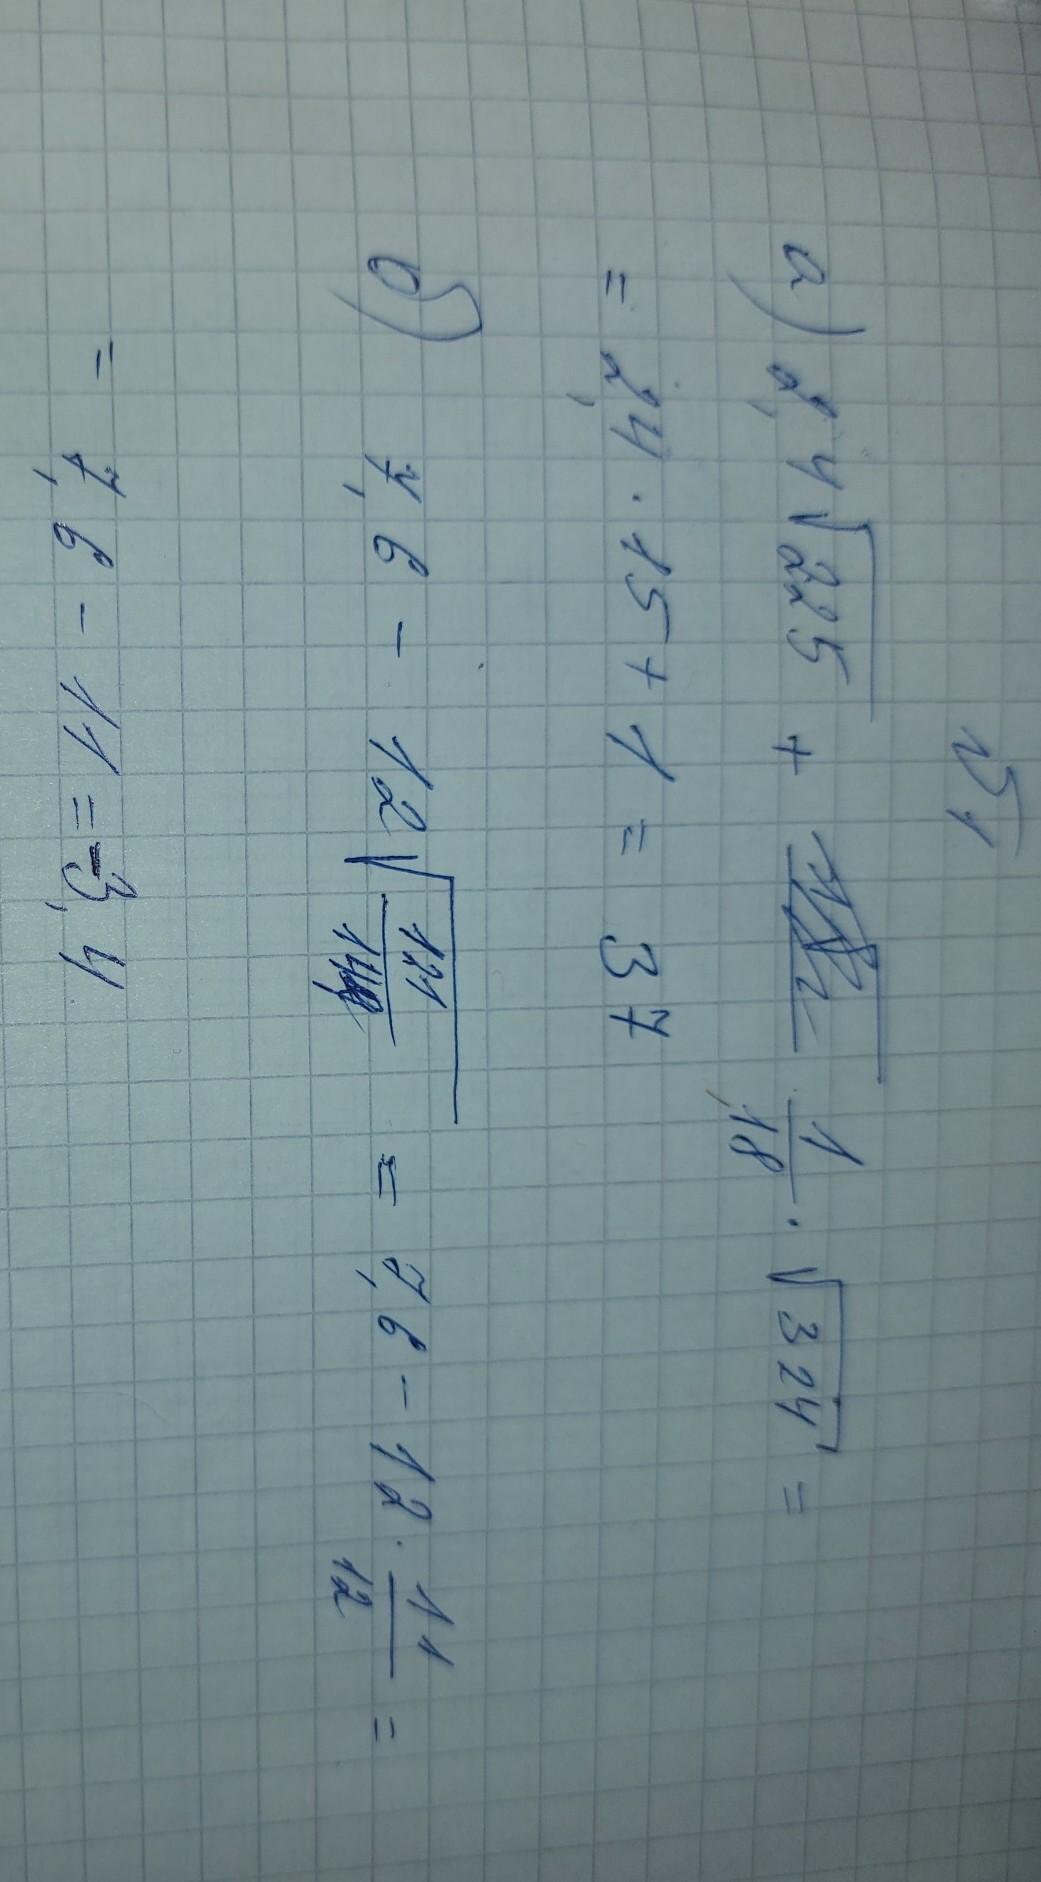 №1
а) 2,4√225 + 1/18 · √324 =
= 2,4 · 15 + 1 = 37
б) 7,6 - 12√(121/144) = 7,6 - 12 · 11/12 =
= 7,6 - 11 = -3,4